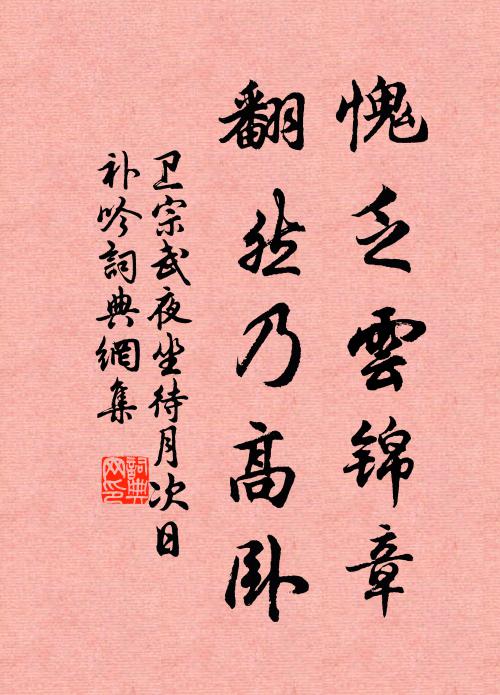 愧乏雲锦章
翻然乃高卧
卫宗武夜坐待月次日
补吟詞典網集
詞典网印